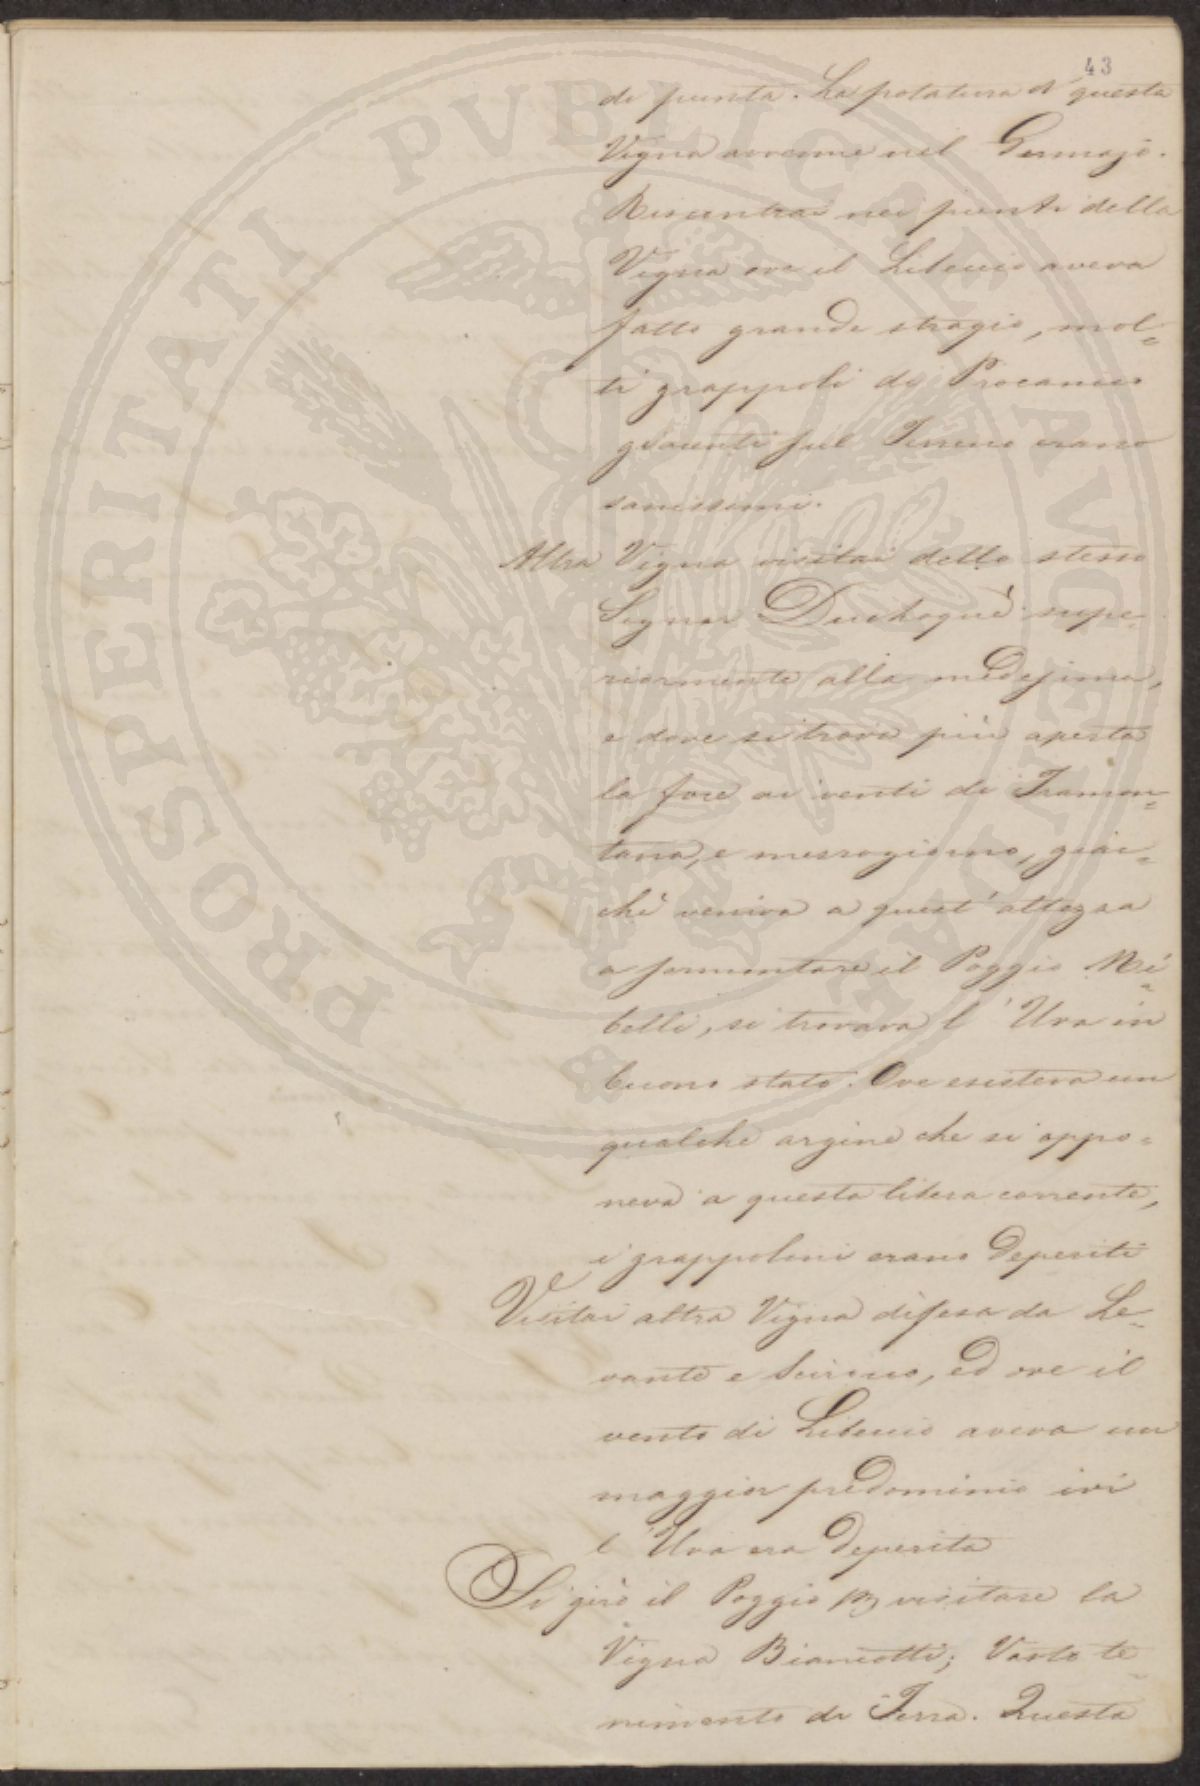 43
di punta. La potatura d'questa
Vigna avvenne nel Gennajo.
Riscontrai nei punti della
Vigna ove il Libeccio aveva
fatto grande stragio, mol=
ti grappoli di Procanico
giacenti sul Terreno erano
sanissimi.
Altra Vigna visitai dello stesso
Signor Duchoquè supe=
riormente alla medesima,
e dove si trova più aperta
la foce ai venti di Tramon=
tana, e mezzogiorno, giac=
chè veniva a quest'altezza
a formontare il Poggio Mi=
belli, si trovava l'Uva in
buono stato. Ove esisteva un
qualche argine che si oppo=
neva a questa libera corrente,
i grappoloni erano deperiti
Visitai altra Vigna difesa da Le=
vante e Scirocco, ed ove il
vento di Libeccio aveva un
maggior predominio ivi
l'Uva era deperita
Si girò il Poggio per visitare la
Vigna Bianciotti; Vasto te=
nimento di Terra. Questa
PROSPERITATI PVBLICAE AVGENDAE